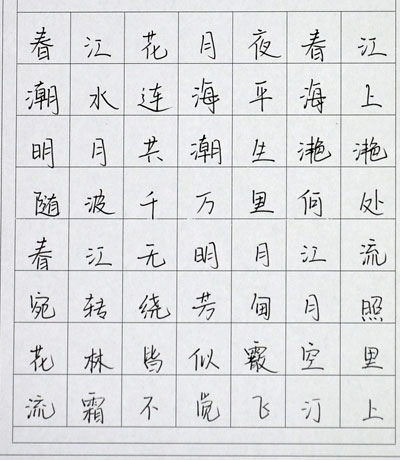 春江花月夜春江
潮水连海平海上
明月共潮生滟滟
随波千万里何处
春江无明月江流
宛转绕芳甸月照
花林皆似霰空里
流霜不觉飞汀上